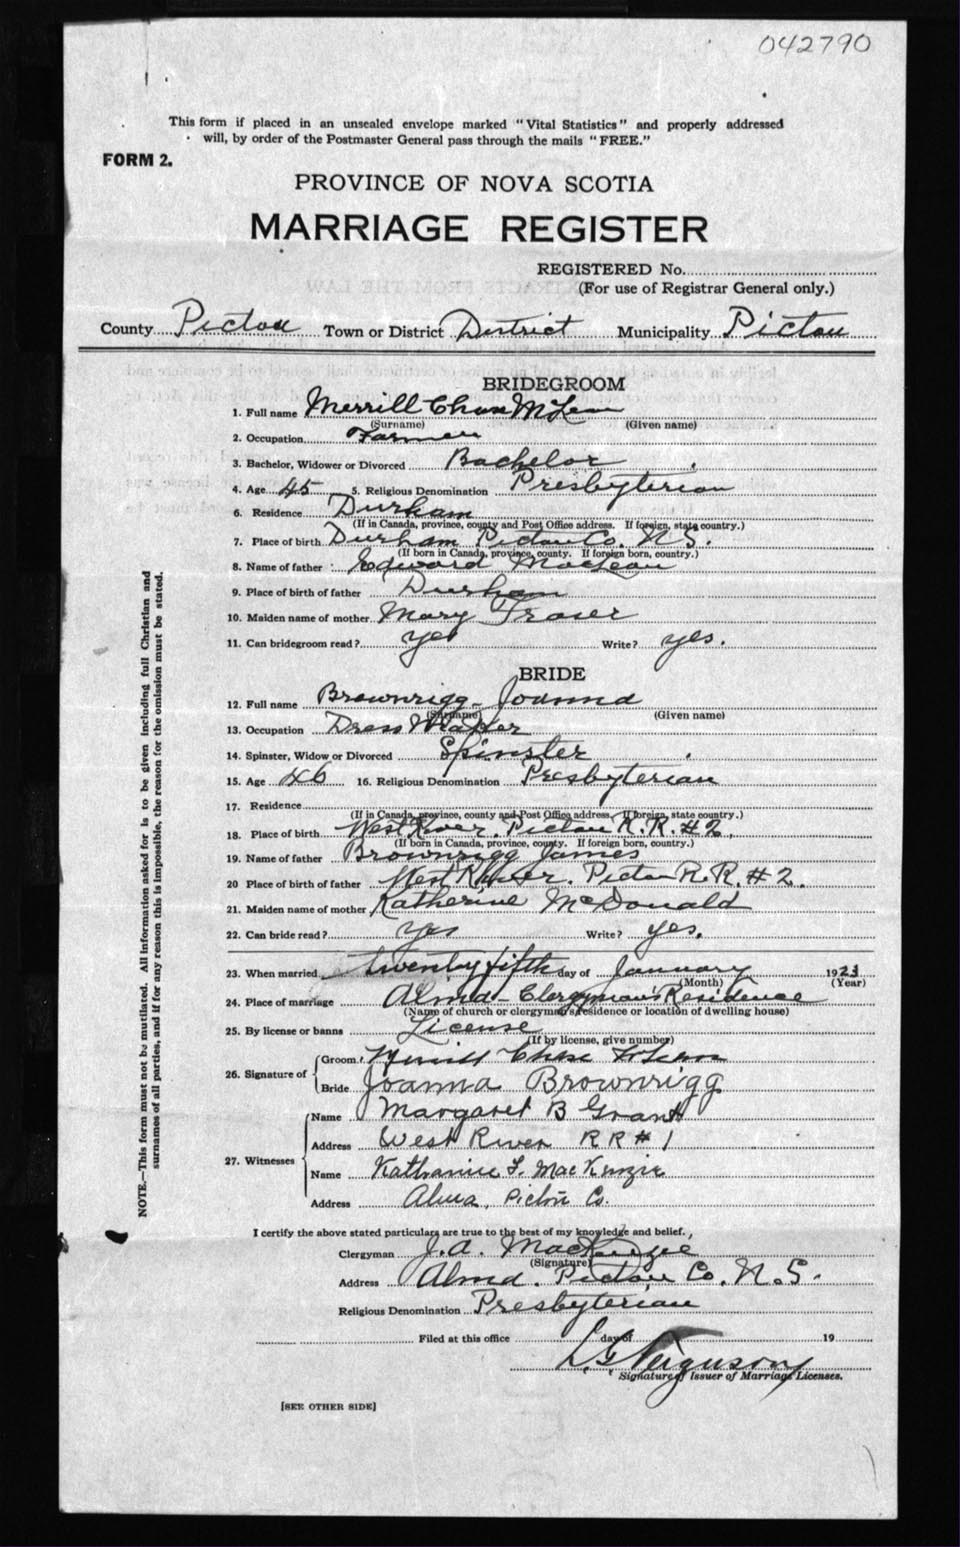 042790
This form if placed in an unsealed envelope marked "Vital Statistics" and properly addressed
will, by order of the Postmaster General pass through the mails "FREE."
FORM 2.
PROVINCE OF NOVA SCOTIA
MARRIAGE REGISTER
REGISTERED No.
(For use of Registrar General only.)
County Pictou Town or District District Municipality Pictou
BRIDEGROOM
1. Full name Merrill Chase McLean
(Surname) (Given name)
2. Occupation Farmer
3. Bachelor, Widower or Divorced Bachelor
4. Age 45 5. Religious Denomination Presbyterian
6. Residence Durham
(If in Canada, province, county and Post Office address. If foreign, state country.)
7. Place of birth Durham Pictou Co. N.S.
(If born in Canada, province, county. If foreign born, country.)
8. Name of father Edward MacLean
9. Place of birth of father Durham
10. Maiden name of mother Mary Fraser
11. Can bridegroom read? yes Write? yes.
BRIDE
12. Full name Brownrigg - Joanna
(Surname) (Given name)
13. Occupation Dress Maker
14. Spinster, Widow or Divorced Spinster
15. Age 46 16. Religious Denomination Presbyterian
17. Residence
(If in Canada, province, county and Post Office address. If foreign, state country.)
18. Place of birth West River. Pictou R.R. #2.
(If born in Canada, province, county. If foreign born, country.)
19. Name of father Brownrigg James
20 Place of birth of father West River. Pictou R.R. #2.
21. Maiden name of mother Katherine McDonald
22. Can bride read? yes Write? yes.
23. When married twenty fifth day of January 1923
(Month) (Year)
24. Place of marriage Alma - Clergyman's Residence
(Name of church or clergyman's residence or location of dwelling house)
25. By license or banns License
(If by license, give number)
26. Signature of Groom Merrill Chase McLean
Bride Joanna Brownrigg
27. Witnesses Name Margaret B Grant
Address West River R R # 1
Name Katharine F. MacKenzie
Address Alma, Pictou Co.
I certify the above stated particulars are true to the best of my knowledge and belief.
Clergyman J. A. MacKenzie
(Signature)
Address Alma. Pictou Co. N.S.
Religious Denomination Presbyterian
Filed at this office day of 19
Ferguson
Signature of Issuer of Marriage Licenses.
[SEE OTHER SIDE]
NOTE.—This form must not be mutilated. All information asked for is to be given including full Christian and
surnames of all parties, and if for any reason this is impossible, the reason for the omission must be stated.